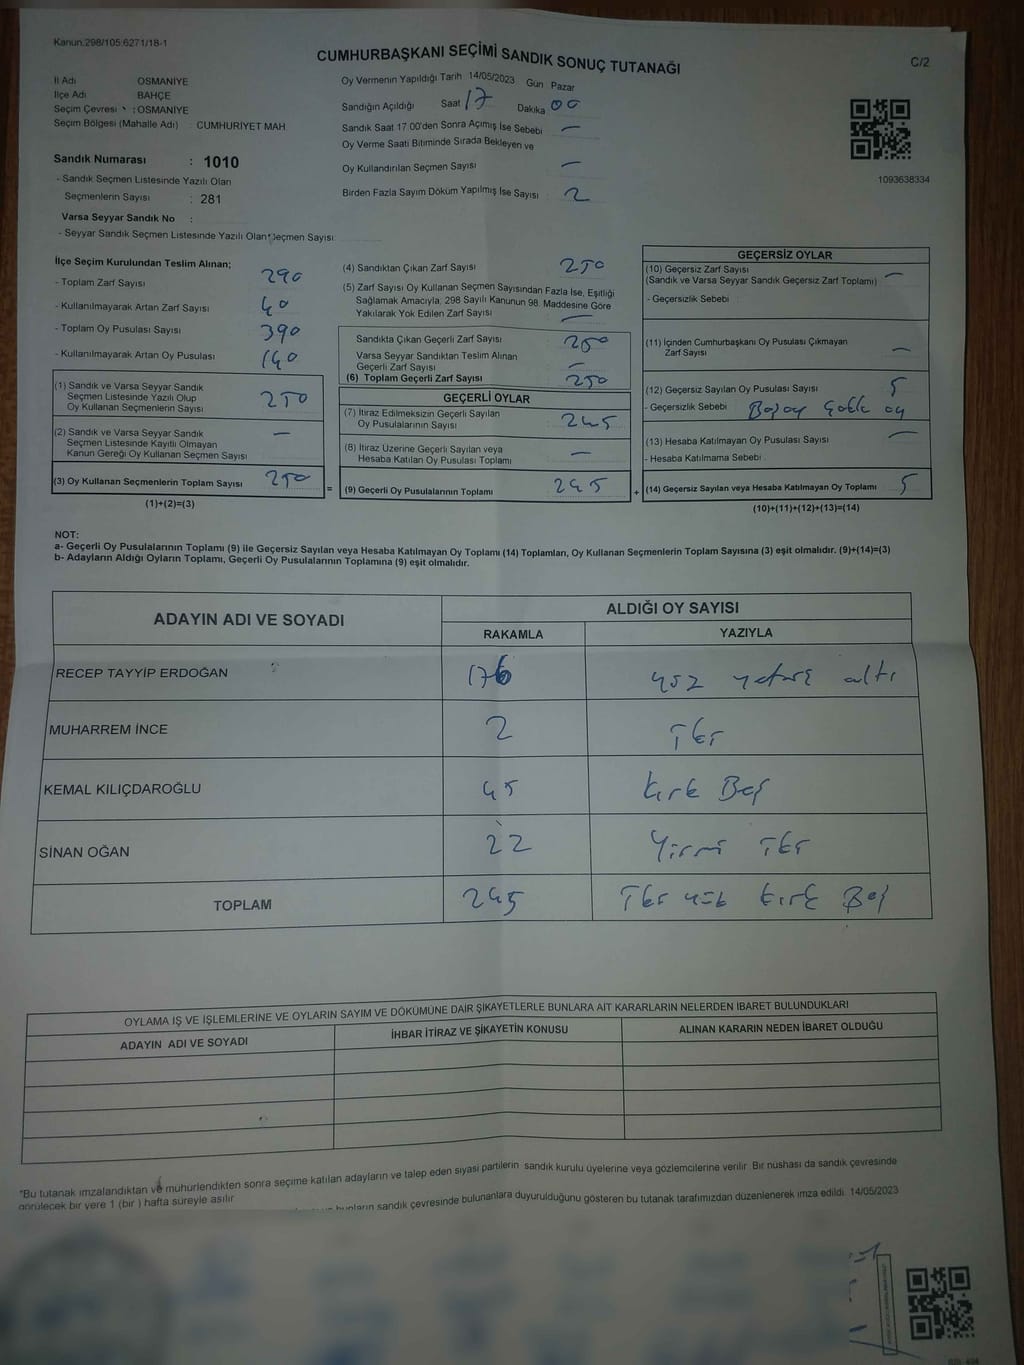 Kanun.298/105:6271/18-1
CUMHURBAŞKANI SEÇİMİ SANDIK SONUÇ TUTANAĞI
C/2
İl Adı OSMANİYE
İlçe Adı BAHÇE
Seçim Çevresi : OSMANİYE
Seçim Bölgesi (Mahalle Adı) : CUMHURİYET MAH
Sandık Numarası : 1010
- Sandık Seçmen Listesinde Yazılı Olan
Seçmenlerin Sayısı : 281
Varsa Seyyar Sandık No :
- Seyyar Sandık Seçmen Listesinde Yazılı Olan Seçmen Sayısı:
Oy Vermenin Yapıldığı Tarih 14/05/2023 Gün Pazar
Sandığın Açıldığı Saat 17 Dakika 00
Sandık Saat 17:00'den Sonra Açımış İse Sebebi —
Oy Verme Saati Bitiminde Sırada Bekleyen ve
Oy Kullandırılan Seçmen Sayısı —
Birden Fazla Sayım Döküm Yapılmış İse Sayısı : 2
1093638334
İlçe Seçim Kurulundan Teslim Alınan;
- Toplam Zarf Sayısı 290
- Kullanılmayarak Artan Zarf Sayısı 40
- Toplam Oy Pusulası Sayısı 390
- Kullanılmayarak Artan Oy Pusulası 140
(1) Sandık ve Varsa Seyyar Sandık
Seçmen Listesinde Yazılı Olup
Oy Kullanan Seçmenlerin Sayısı 250
(2) Sandık ve Varsa Seyyar Sandık
Seçmen Listesinde Kayıtlı Olmayan
Kanun Gereği Oy Kullanan Seçmen Sayısı —
(3) Oy Kullanan Seçmenlerin Toplam Sayısı 250
(1)+(2)=(3)
(4) Sandıktan Çıkan Zarf Sayısı 250
(5) Zarf Sayısı Oy Kullanan Seçmen Sayısından Fazla İse, Eşitliği
Sağlamak Amacıyla, 298 Sayılı Kanunun 98. Maddesine Göre
Yakılarak Yok Edilen Zarf Sayısı —
Sandıkta Çıkan Geçerli Zarf Sayısı 250
Varsa Seyyar Sandıktan Teslim Alınan
Geçerli Zarf Sayısı —
(6) Toplam Geçerli Zarf Sayısı 250
GEÇERLİ OYLAR
(7) İtiraz Edilmeksizin Geçerli Sayılan
Oy Pusulalarının Sayısı 245
(8) İtiraz Üzerine Geçerli Sayılan veya
Hesaba Katılan Oy Pusulası Toplamı —
= (9) Geçerli Oy Pusulalarının Toplamı 245 +
GEÇERSİZ OYLAR
(10) Geçersiz Zarf Sayısı
(Sandık ve Varsa Seyyar Sandık Geçersiz Zarf Toplamı) —
- Geçersizlik Sebebi
(11) İçinden Cumhurbaşkanı Oy Pusulası Çıkmayan
Zarf Sayısı —
(12) Geçersiz Sayılan Oy Pusulası Sayısı 5
- Geçersizlik Sebebi oy
(13) Hesaba Katılmayan Oy Pusulası Sayısı —
- Hesaba Katılmama Sebebi
(14) Geçersiz Sayılan veya Hesaba Katılmayan Oy Toplamı 5
(10)+(11)+(12)+(13)=(14)
NOT:
a- Geçerli Oy Pusulalarının Toplamı (9) ile Geçersiz Sayılan veya Hesaba Katılmayan Oy Toplamı (14) Toplamları, Oy Kullanan Seçmenlerin Toplam Sayısına (3) eşit olmalıdır. (9)+(14)=(3)
b- Adayların Aldığı Oyların Toplamı, Geçerli Oy Pusulalarının Toplamına (9) eşit olmalıdır.
ADAYIN ADI VE SOYADI
ALDIĞI OY SAYISI
RAKAMLA YAZIYLA
RECEP TAYYİP ERDOĞAN 176 yüz yetmiş altı
MUHARREM İNCE 2 İki
KEMAL KILIÇDAROĞLU 45 Kırk Beş
SİNAN OĞAN 22 Yirmi İki
TOPLAM 245 İki yüz kırk Beş
OYLAMA İŞ VE İŞLEMLERİNE VE OYLARIN SAYIM VE DÖKÜMÜNE DAİR ŞİKAYETLERLE BUNLARA AİT KARARLARIN NELERDEN İBARET BULUNDUKLARI
ADAYIN ADI VE SOYADI İHBAR İTİRAZ VE ŞİKAYETİN KONUSU ALINAN KARARIN NEDEN İBARET OLDUĞU
*Bu tutanak imzalandıktan ve mühürlendikten sonra seçime katılan adayların ve talep eden siyasi partilerin sandık kurulu üyelerine veya gözlemcilerine verilir. Bir nüshası da sandık çevresinde
görülecek bir yere 1 (bir) hafta süreyle asılır.
bunların sandık çevresinde bulunanlara duyurulduğunu gösteren bu tutanak tarafımızdan düzenlenerek imza edildi. 14/05/2023